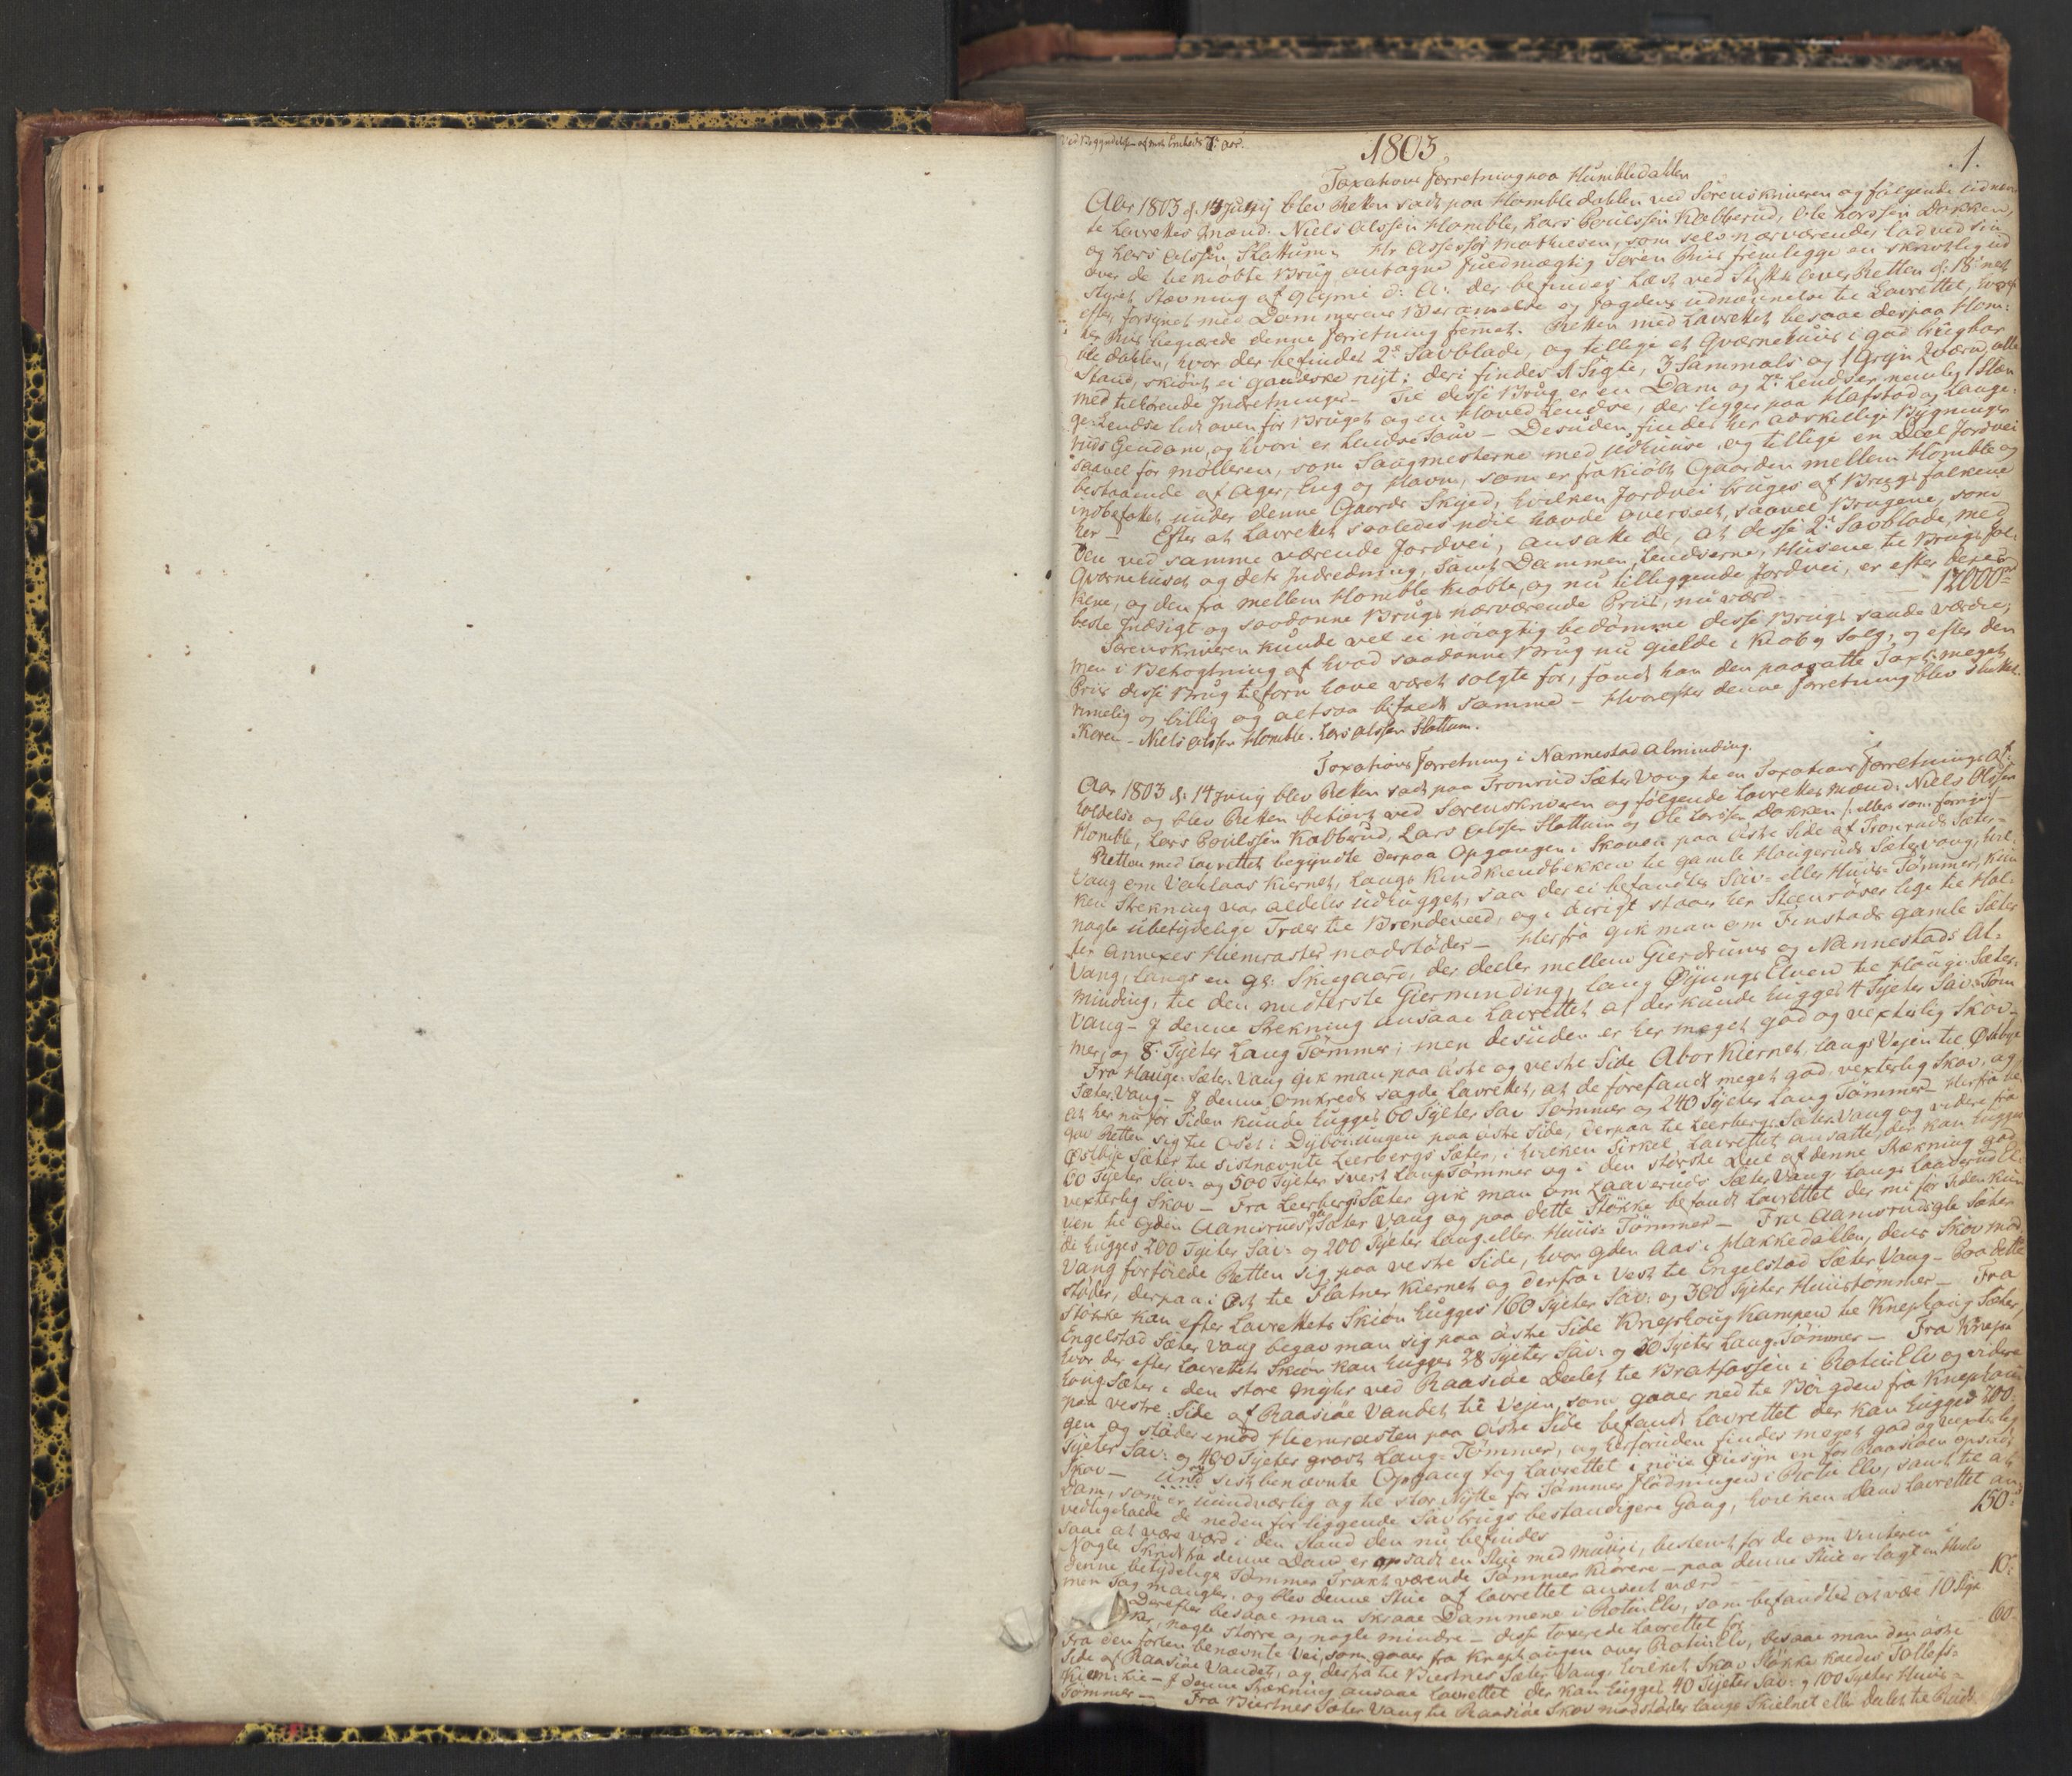 Ved Begyndelsen af mit Embeds 7de Aar.
1803
1.
Taxations Forretning paa Humbledahlen
Aar 1803 d: 14 Junij blev Retten sadt paa Homble dahlen ved Sorenskriveren og følgende udnævn
te Laurettes Mænd: Niels Olssen Homble, Lars Poulssen Kabberud, Ole Larssen Dakken,
og Lars Olssen Slattum. Hr Assessor Mathiesen, som selv nærværende, lod ved sin
over de bekiøbte Brug antagne Fuldmægtig Søren Riis fremlegge en skriftlig ud
styret Stævning af d: A: der befindes læst ved Stifts Over Retten d: 18 næst
efter, forsynet med Dommerens Berammelse og Fogdens udnævnelse til Laurettet, hvoref
ter Riis begiærede denne Forretning fremet. Retten med Laurettet besaae derpaa Hom-
ble dahlen, hvor der befindes 2de Savblade, og tillige et Qværnehuus i god brugbar
Stand, skiønt ei gandske nyt; deri findes 1 Sigte, 3 Sammals og 1 Gryn Qværn, alle
med tilhørende Indretninger – Til disse Brug er en Dam og 2de Lendser nemlig 1 Hæn
ge Lendse lidt oven for Bruget og en Hoved Lendse, der ligger paa Hafstad og Lange-
ruds Eiendom, og hvori er Lendse Taug – Desuden findes her adskillige Bygninger
saavel for Mølleren, som Saugmesterne med Udhuuse, og tillige en Deel Jordvei
bestaaende af Ager, Eng og Havn, som er frakiøbt Gaarden mellem Homble og
indbefattet under denne Gaards Skyld, hvilken Jordvei bruges af Brugs folkene
her – Efter at Laurettet saaledes nøie havde overseet, saavel Brugene, som
den ved samme værende Jordvei, ansatte de, at disse 2de Savblade, med
Qværnehuset og dets Indredning, samt Dammen, Lendserne, Husene til Brugs fol-
kene, og den fra mellem Homble kiøbte, og nu tilliggende Jordvei, er efter deres
beste Indsigt og saadanne Brugs nærværende Priis, nu værd – 12000 rd
Sorenskriveren kunde vel ei nøiagtig bedømme disse Brugs sande værdie,
men i Betragtning af hvad saadanne Brug nu gielde i Kiøb og Salg, og efter den
Priis disse Brug tilforn have været solgte for, fandt han den paasatte Taxt meget
rimelig og billig og altsaa bifaldt samme – Hvorefter denne Forretning blev sluttet.
Koren – Niels Olssen Homble. Lars Olssen Slattum.
Taxations Forretning i Nannestad Alminding.
Aar 1803 d: 14 Junij blev Retten sadt paa Tronrud Sæter Vang til en Taxations Forretnings Af-
holdelse og blev Retten betient ved Sorenskriveren og følgende Laurettes Mænd: Niels Olssen
Homble, Lars Poulssen Kabberud, Lars Olssen Slattum og Ole Larssen Dakken /: alle som forrige :/
Retten med Laurettet begyndte derpaa Opgangen i Skoven paa østre Side af Tronruds Sæter-
Vang om Vaklaas Kiernet, langs Kindkiendbekken til gamle Haugeruds Sætervang, hvil-
ken Strekning var aldeles udhugget, saa der ei befandtes Sav- eller Huus-Tømmer, kun
nogle ubetydelige Træer til Brændeveed, og i øvrigt staaer her Steenrøser lige til Hol-
ter Annexes Hiemraster modstøder – Herfra gik man om Finstads gamle Sæter
Vang, langs en gl: Skigaard, der deeler mellem Gierdrums og Nannestads Al-
minding, til den nudterste Giermunding, lang Øijungs Elven til Hauge-Sæter-
Vang – I denne Strekning ansaae Laurettet at der kunde hugges 4 Tylter Sav-Tøm
mer, og 8 Tylter Lang Tømmer; men desuden er her meget god og vexterlig Skov –
Fra Hauge-Sæter-Vang gik man paa østre og vestre Side Abor Kiernet, langs Vejen til Østbye
Sæter Vang – I denne Omkreds sagde Laurettet, at de forefandt meget god, vexterlig Skov, og
at her nu for Tiden kunde hugges 60 Tylter Sav Tømmer og 240 Tylter Lang Tømmer – Herfra be
gav Retten sig til Oset i Dybøiungen paa østre Side, derpaa til Leerbergs Sæter Vang og videre fra
Østbye Sæter til sistnævnte Leerbergs Sæter, i hvilken Cirkel Laurettet ansatte, der kan hugges
60 Tylter Sav- og 500 Tylter svert Lang Tømmer og i den største Deel af denne Strækning god
vexterlig Skov – Fra Leerbergs Sæter gik man om Laaveruds Sæter Vang langs Laaverud El-
ven til Gden Aamsruds gl Sæter Vang og paa dette Støkke befandt Laurettet der nu for Tiden kun
de hugges 200 Tylter Sav- og 200 Tylter Lang eller Huus-Tømmer – Fra Aamsruds gle Sæter
Vang forføiede Retten sig paa vestre Side, hvor Gden Aas i Hakkedahlen, deres Skov mod
støder, derpaa i Øst til Flatner Kiernet og derfra i Vest til Engelstad Sæter Vang – Paa dette
Støkke kan efter Laurettets Skiøn hugges 160 Tylter Sav- og 300 Tylter Huustømmer – Fra
Engelstad Sæter Vang begav man sig paa østre Side Knephoug Kampen til Knephoug Sæter,
hvor der efter Laurettets Skiøn kan hugges 28 Tylter Sav- og 70 Tylter Lang-Tømmer – Fra Knep
houg Sæter i den store Myhr ved Raasiøe Deelet til Bratfossen i Rotua Elv og videre
paa vestre Side af Raasiøe Vandet til Vejen, som gaaer ned til Bøigden fra Knephau
gen og støder imod Hiemrasten paa østre Side befandt Laurettet der kan hugges 200
Tylter Sav- og 400 Tylter grovt Lang-Tømmer, og herforuden findes meget god og vexterlig
Skov – Und sist benævnte Opgang tog Laurettet i nøie Øiesyn en for Raasiøen opsadt
Dam, som er uundværlig og til stor Nytte for Tømmer Flødningen i Rotua Elv, samt til at
vedligeholde de neden for liggende Savbrugs bestandigere Gang, hvilken Dam Laurettet an
saae at være værd i den Stand den nu befindes – 150 rd
Nogle Skridt fra denne Dam er opsadt en Stue med Muur i, bestemt for de om Vinteren i
denne betydelige Tømmer Trakt værende Tømmer Kiørere – paa denne Stue er lagt en Hvelv
men Tag mangler, og blev denne Stue af Laurettet anseet værd – 10 –
Derefter besaae man Skraae Dammene i Rotua Elv, som befandtes at være 10 Styk
ker, nogle større og nogle mindre – disse taxerede Laurettet for – 60 –
Fra den forhen benævnte Vei, som gaaer fra Knephaugen over Rotua Elv, besaae man den østre
Side af Raasiøe Vandet, og derfra til Biertnes Sæter Vang, hvilket Skov Støkke kaldes Tollefs-
Kiern-Lie – I denne Strækning ansaae Laurettet der kan hugges 40 Tylter Sav- og 100 Tylter Huus-
Tømmer – Fra Biertnes Sæter Vang til Raasiøe Skov modstøder langs Skielnet eller Deelet til